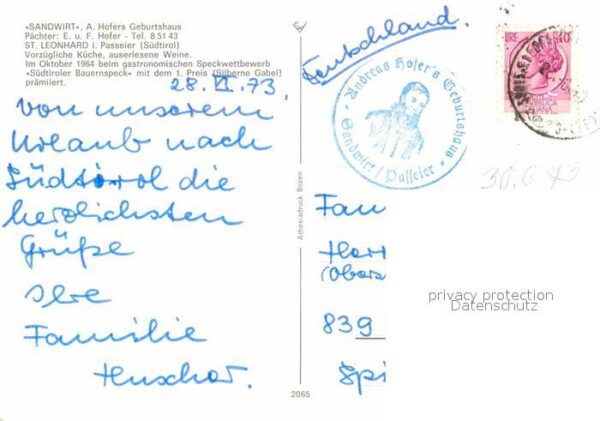 «SANDWIRT», A. Hofers Geburtshaus
Pächter: E. u. F. Hofer - Tel. 8 51 43
ST. LEONHARD i. Passeier (Südtirol)
Vorzügliche Küche, auserlesene Weine.
Im Oktober 1964 beim gastronomischen Speckwettbewerb
«Südtiroler Bauernspeck» mit dem 1. Preis (Silberne Gabel)
prämiiert.
28. VI. 73
von unserem
Urlaub nach
Südtirol die
herzlichsten
Grüße
Ihre
Familie
Huschar.
Athesiadruck Bozen
2065
Deutschland.
Andreas Hofer's Geburtshaus
Sandwirt / Passeier
LIRE
30.6.73
Fam
Herr
(Obers
839
Spi
privacy protection
Datenschutz